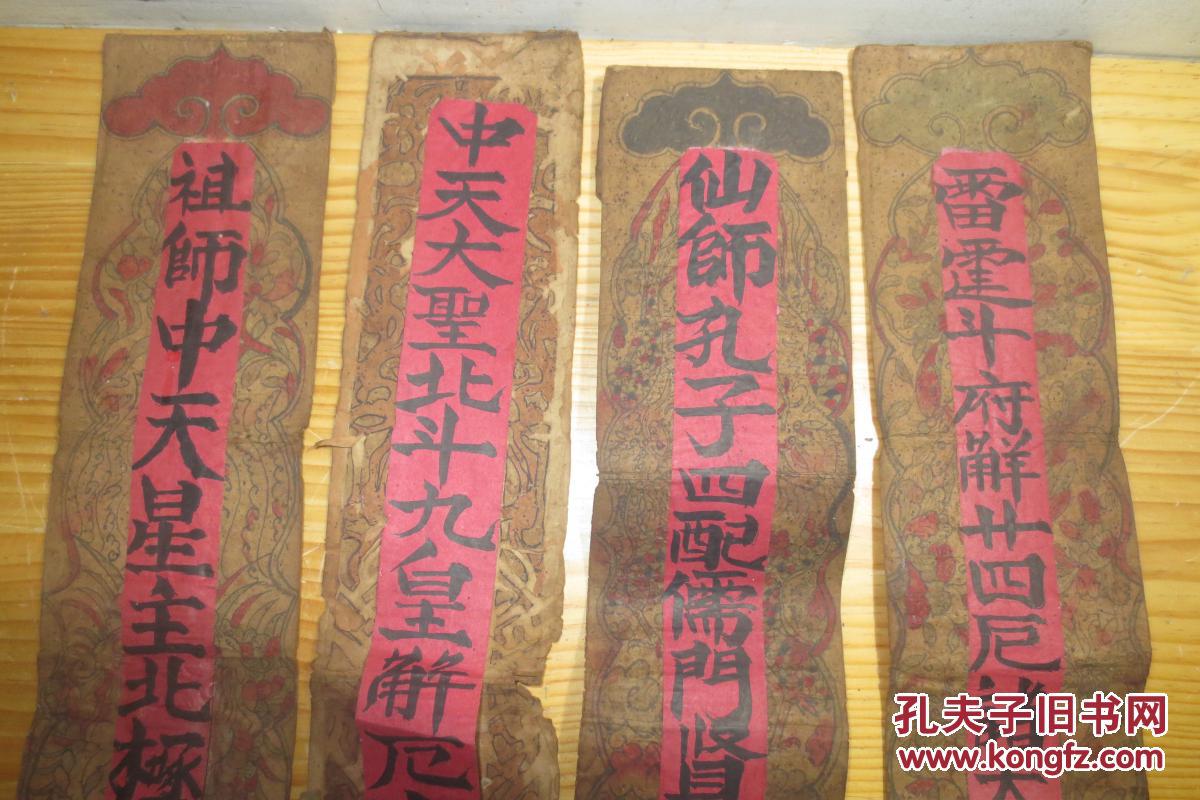 祖師中天星主北極
中天大聖北斗九皇解厄
仙師孔子四配儒門賢
雷霆斗府解廿四厄諸天
孔夫子旧书网
www.kongfz.com